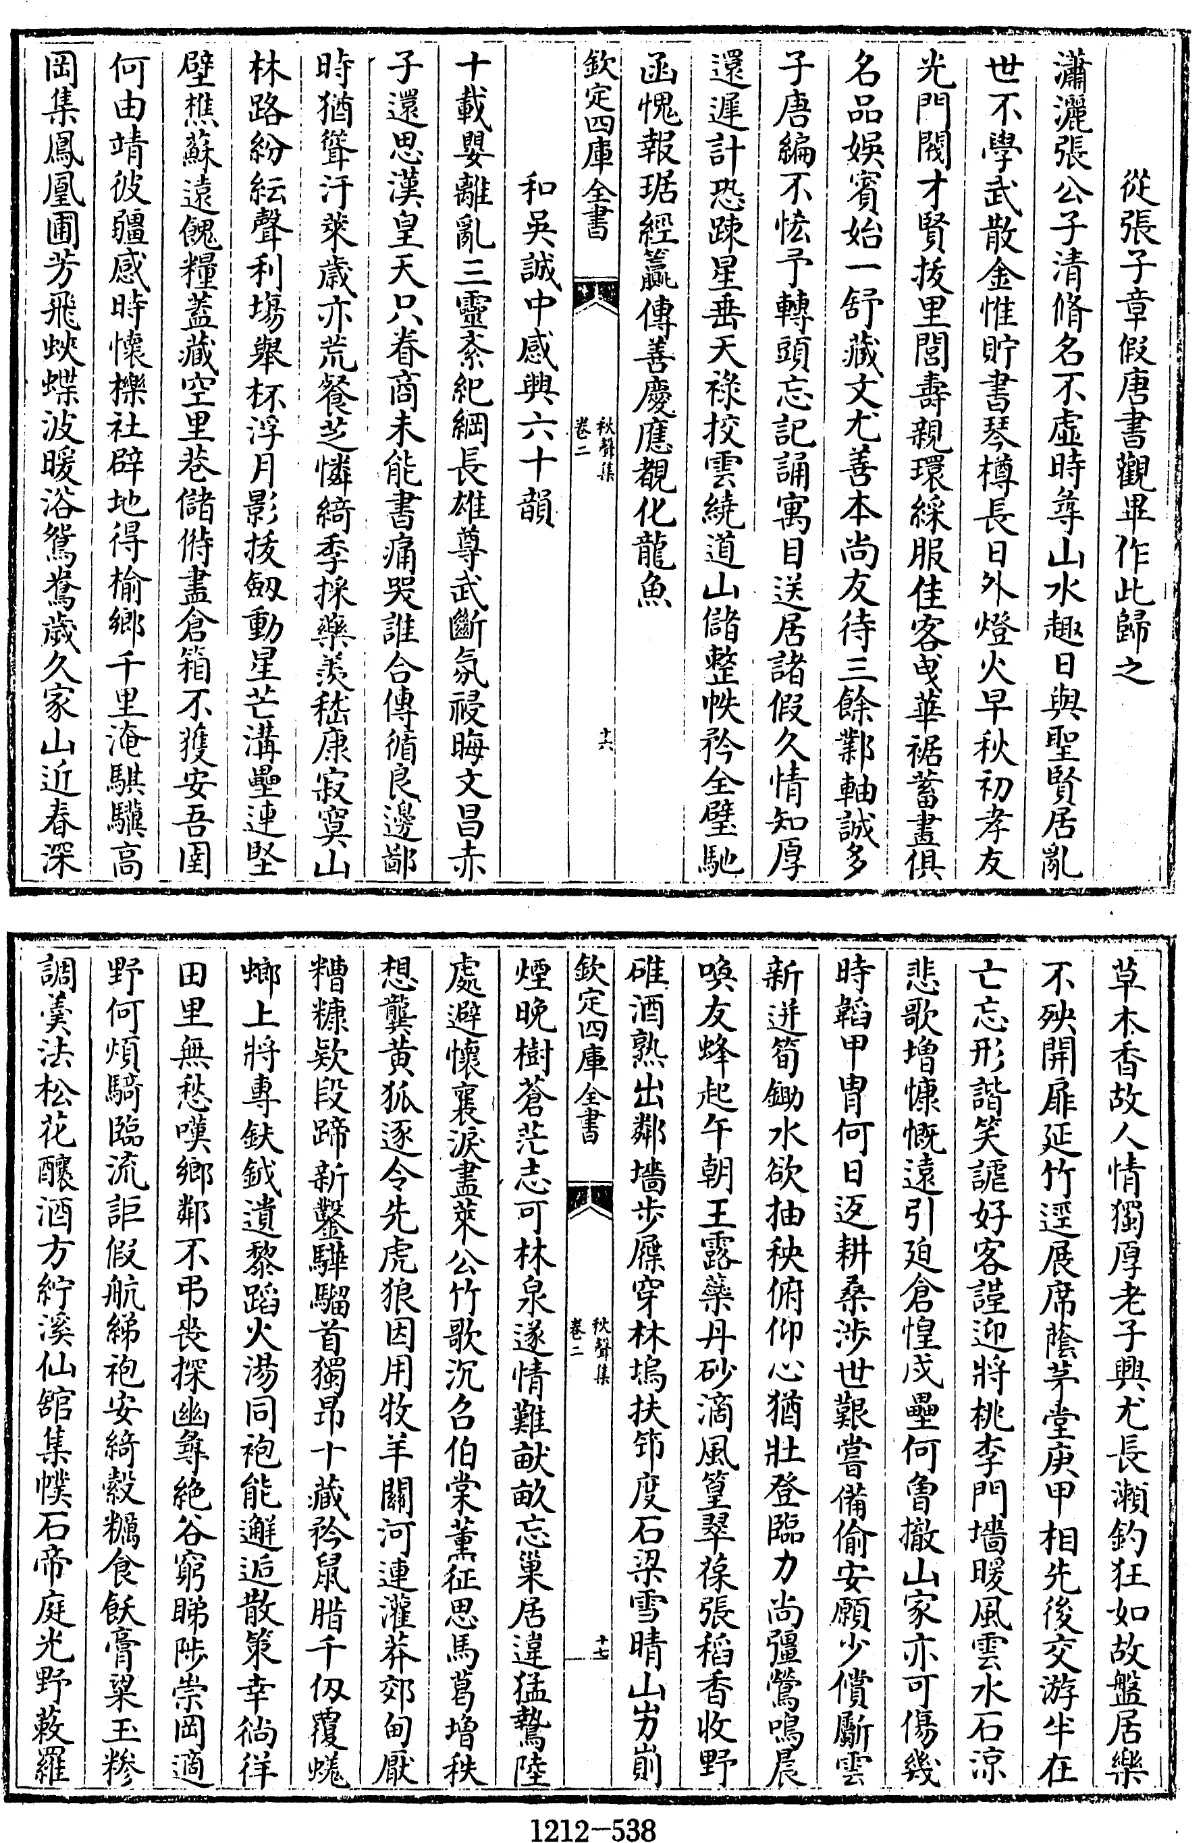 從張子章假唐書觀畢作此歸之
瀟灑張公子清脩名不虛時尋山水趣日與聖賢居亂
世不學武散金惟貯書琴樽長日外燈火早秋初孝友
光門閥才賢拔里閭壽親環綵服佳客曳華裾蓄畫俱
名品娛賓始一舒藏文尤善本尚友待三餘鄴軸誠多
子唐編不恡予轉頭忘記誦寓目送居諸假久情知厚
還遲計恐踈星垂天祿挍雲繞道山儲整帙矜全璧馳
函愧報琚經籯傳善慶應覩化龍魚
欽定四庫全書
秋聲集
卷二
十六
和吳誠中感興六十韻
十載嬰離亂三靈紊紀綱長雄尊武斷氛祲晦文昌赤
子還思漢皇天只眷商未能書痛哭誰合傳循良邊鄙
時猶聳汙萊歲亦荒餐芝憐綺季採藥羨嵇康寂寞山
林路紛紜聲利塲舉杯浮月影拔劒動星芒溝壘連堅
壁樵蘇遠餽糧蓋藏空里巷儲偫盡倉箱不獲安吾圉
何由靖彼疆感時懷櫟社辟地得榆鄉千里淹騏驥高
岡集鳳凰圃芳飛蛺蝶波暖浴鴛鴦歲久家山近春深
草木香故人情獨厚老子興尤長瀨釣狂如故盤居樂
不殃開扉延竹逕展席蔭茅堂庚甲相先後交游半在
亡忘形諧笑謔好客謹迎將桃李門墻暖風雲水石涼
悲歌增慷慨遠引廹倉惶戍壘何曾撤山家亦可傷幾
時韜甲胄何日返耕桑涉世艱嘗備偷安願少償斸雲
新迸筍鋤水欲抽秧俯仰心猶壯登臨力尚彊鶯鳴晨
喚友蜂起午朝王露藥丹砂滴風篁翠葆張稻香收野
碓酒熟出鄰墻步屧穿林塢扶笻度石梁雪晴山岃崱
欽定四庫全書
秋聲集
卷二
十七
煙晚樹蒼茫志可林泉遂情難畎畝忘巢居違猛鷙陸
處避懷襄淚盡萊公竹歌沉召伯棠薰征思馬葛增秩
想龔黃狐逐令先虎狼因用牧羊關河連灌莽郊甸厭
糟糠欵段蹄新鑿驊騮首獨昂十藏矜鼠腊千仭覆蜣
螂上將專鈇鉞遺黎蹈火湯同袍能邂逅散策幸徜徉
田里無愁嘆鄉鄰不弔喪探幽尋絶谷窮睇陟崇岡適
野何煩騎臨流詎假航綈袍安綺縠糲食飫膏粱玉糝
調羹法松花釀酒方紵溪仙舘集幞石帝庭光野蔌羅
1212－538